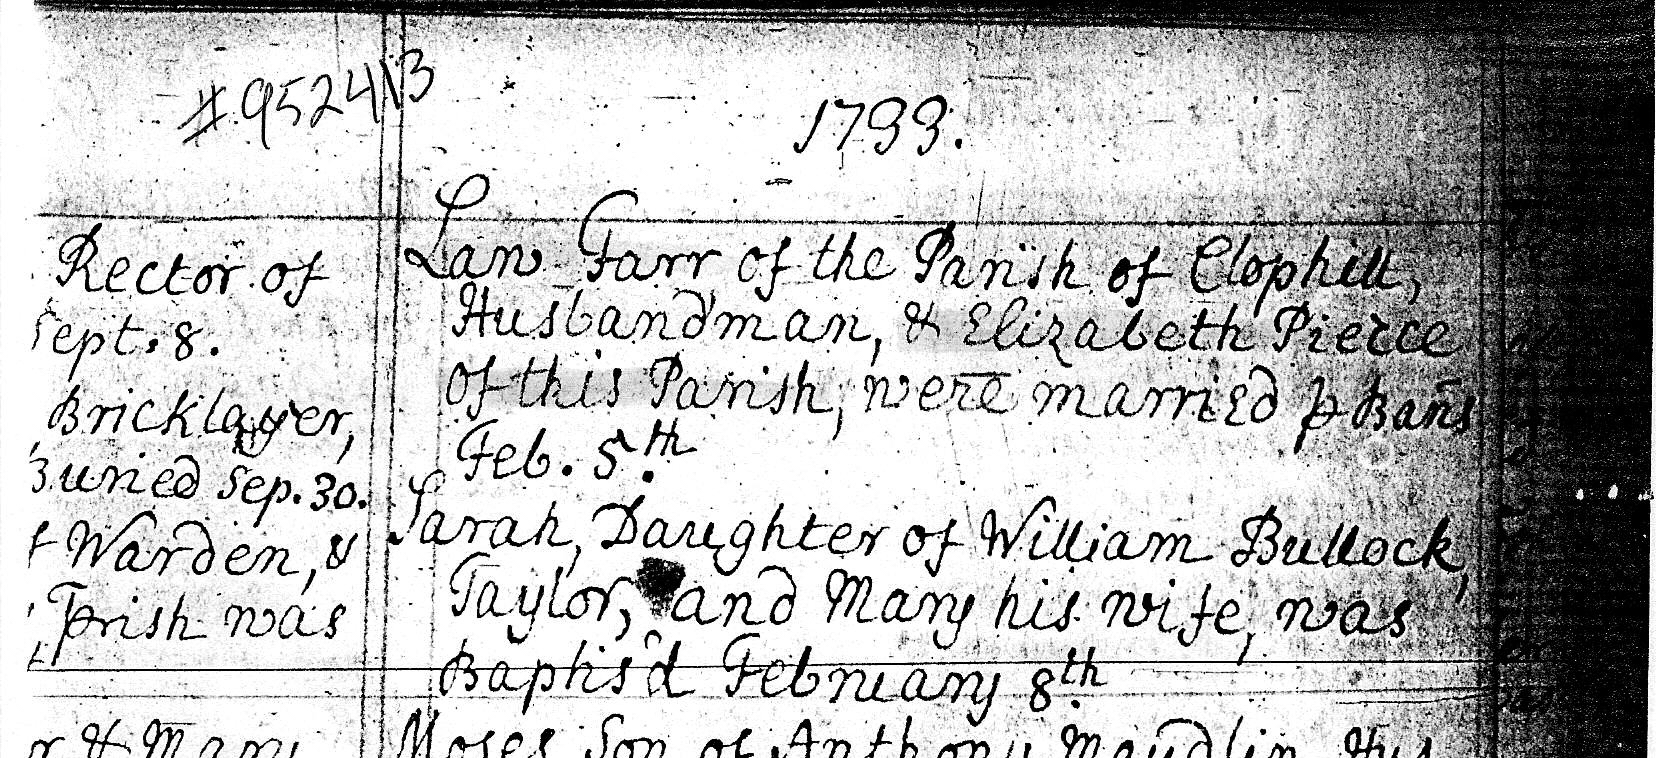 #952413
1733.
Rector of
Sept. 8.
Bricklayer,
Buried Sep. 30.
Warden, &
Prish was
r & Mary
Lan Farr of the Parish of Clophill,
Husbandman, & Elizabeth Pierce
of this Parish, were married ꝑ Bañs
Feb. 5.th
Sarah, Daughter of William Bullock,
Taylor, and Mary his wife, was
Baptis'd February 8.th
Moses Son of Anthony Maudlin Hus